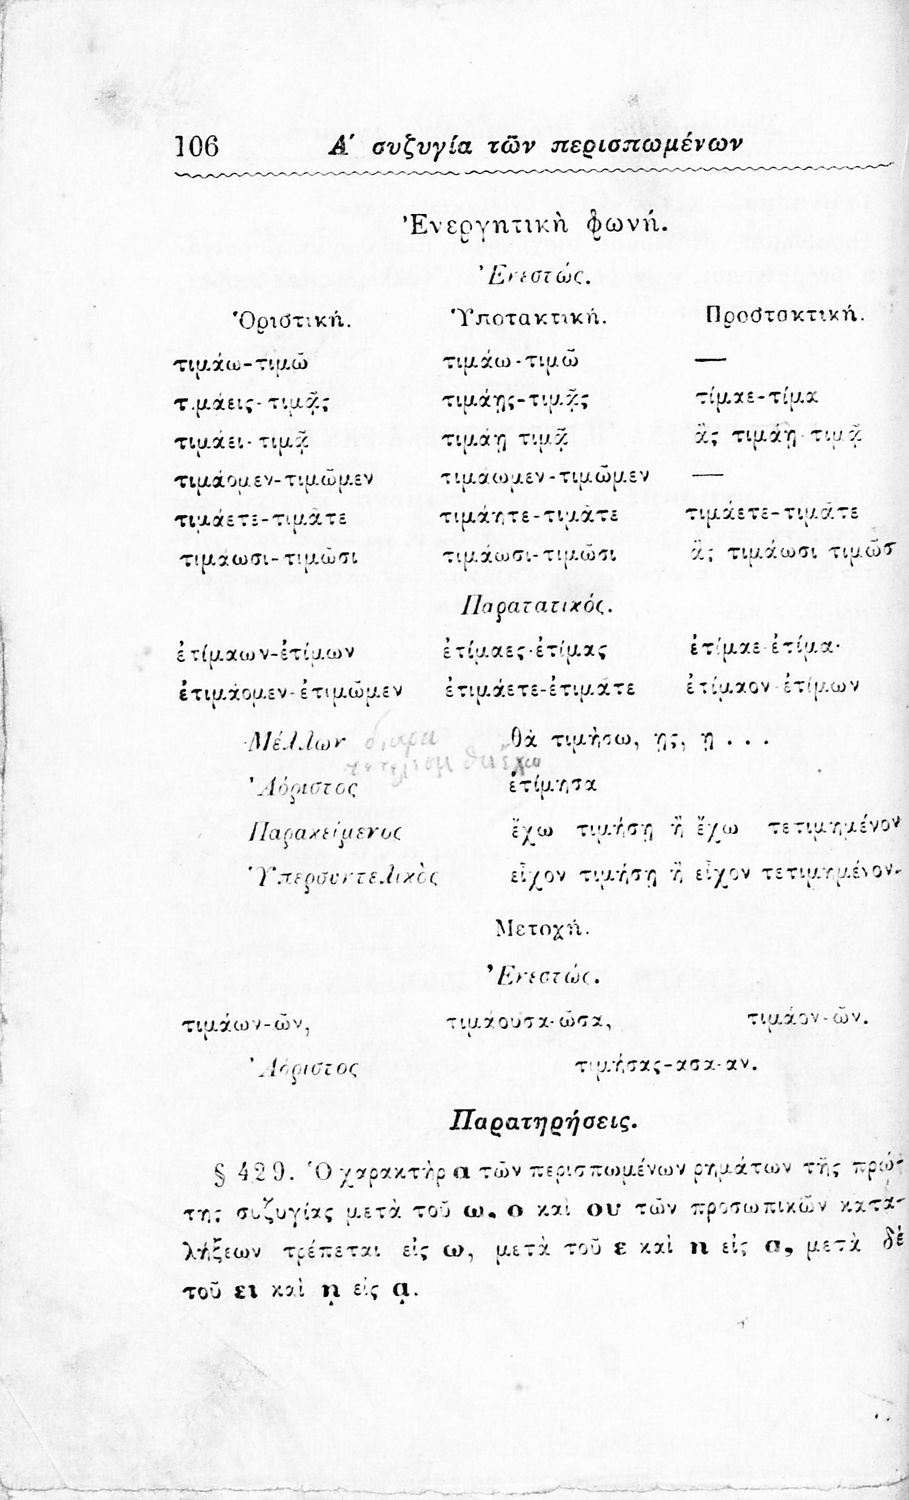 106 Α΄ συζυγία τῶν περισπωμένων
Ἐνεργητικὴ φωνή.
Ἐνεστώς.
Ὁριστική. Ὑποτακτική. Προστακτική.
τιμάω-τιμῶ τιμάω-τιμῶ —
τιμάεις-τιμᾷς τιμάῃς-τιμᾷς τίμαε-τίμα
τιμάει-τιμᾷ τιμάῃ τιμᾷ ἂς τιμάῃ-τιμᾷ
τιμάομεν-τιμῶμεν τιμάωμεν-τιμῶμεν —
τιμάετε-τιμᾶτε τιμάητε-τιμᾶτε τιμάετε-τιμᾶτε
τιμάωσι-τιμῶσι τιμάωσι-τιμῶσι ἂς τιμάωσι τιμῶσ
Παρατατικός.
ἐτίμαων-ἐτίμων ἐτίμαες-ἐτίμας ἐτίμαε-ἐτίμα·
ἐτιμάομεν-ἐτιμῶμεν ἐτιμάετε-ἐτιμᾶτε ἐτίμαον-ἐτίμων
Μέλλων θὰ τιμήσω, ῃς, ῃ . . .
θὰ ἔχω
Ἀόριστος ἐτίμησα
Παρακείμενος ἔχω τιμήσῃ ἢ ἔχω τετιμημένον
Ὑπερσυντελικὸς εἶχον τιμήσῃ ἢ εἶχον τετιμημένον.
Μετοχή.
Ἐνεστώς.
τιμάων-ῶν, τιμάουσα-ῶσα, τιμάον-ῶν.
Ἀόριστος τιμήσας-ασα-αν.
Παρατηρήσεις.
§ 429. Ὁ χαρακτὴρ α τῶν περισπωμένων ρημάτων τῆς πρώ-
της συζυγίας μετὰ τοῦ ω, ο καὶ ου τῶν προσωπικῶν κατα-
λήξεων τρέπεται εἰς ω, μετὰ τοῦ ε καὶ η εἰς α, μετὰ δὲ
τοῦ ει καὶ ῃ εἰς ᾳ.